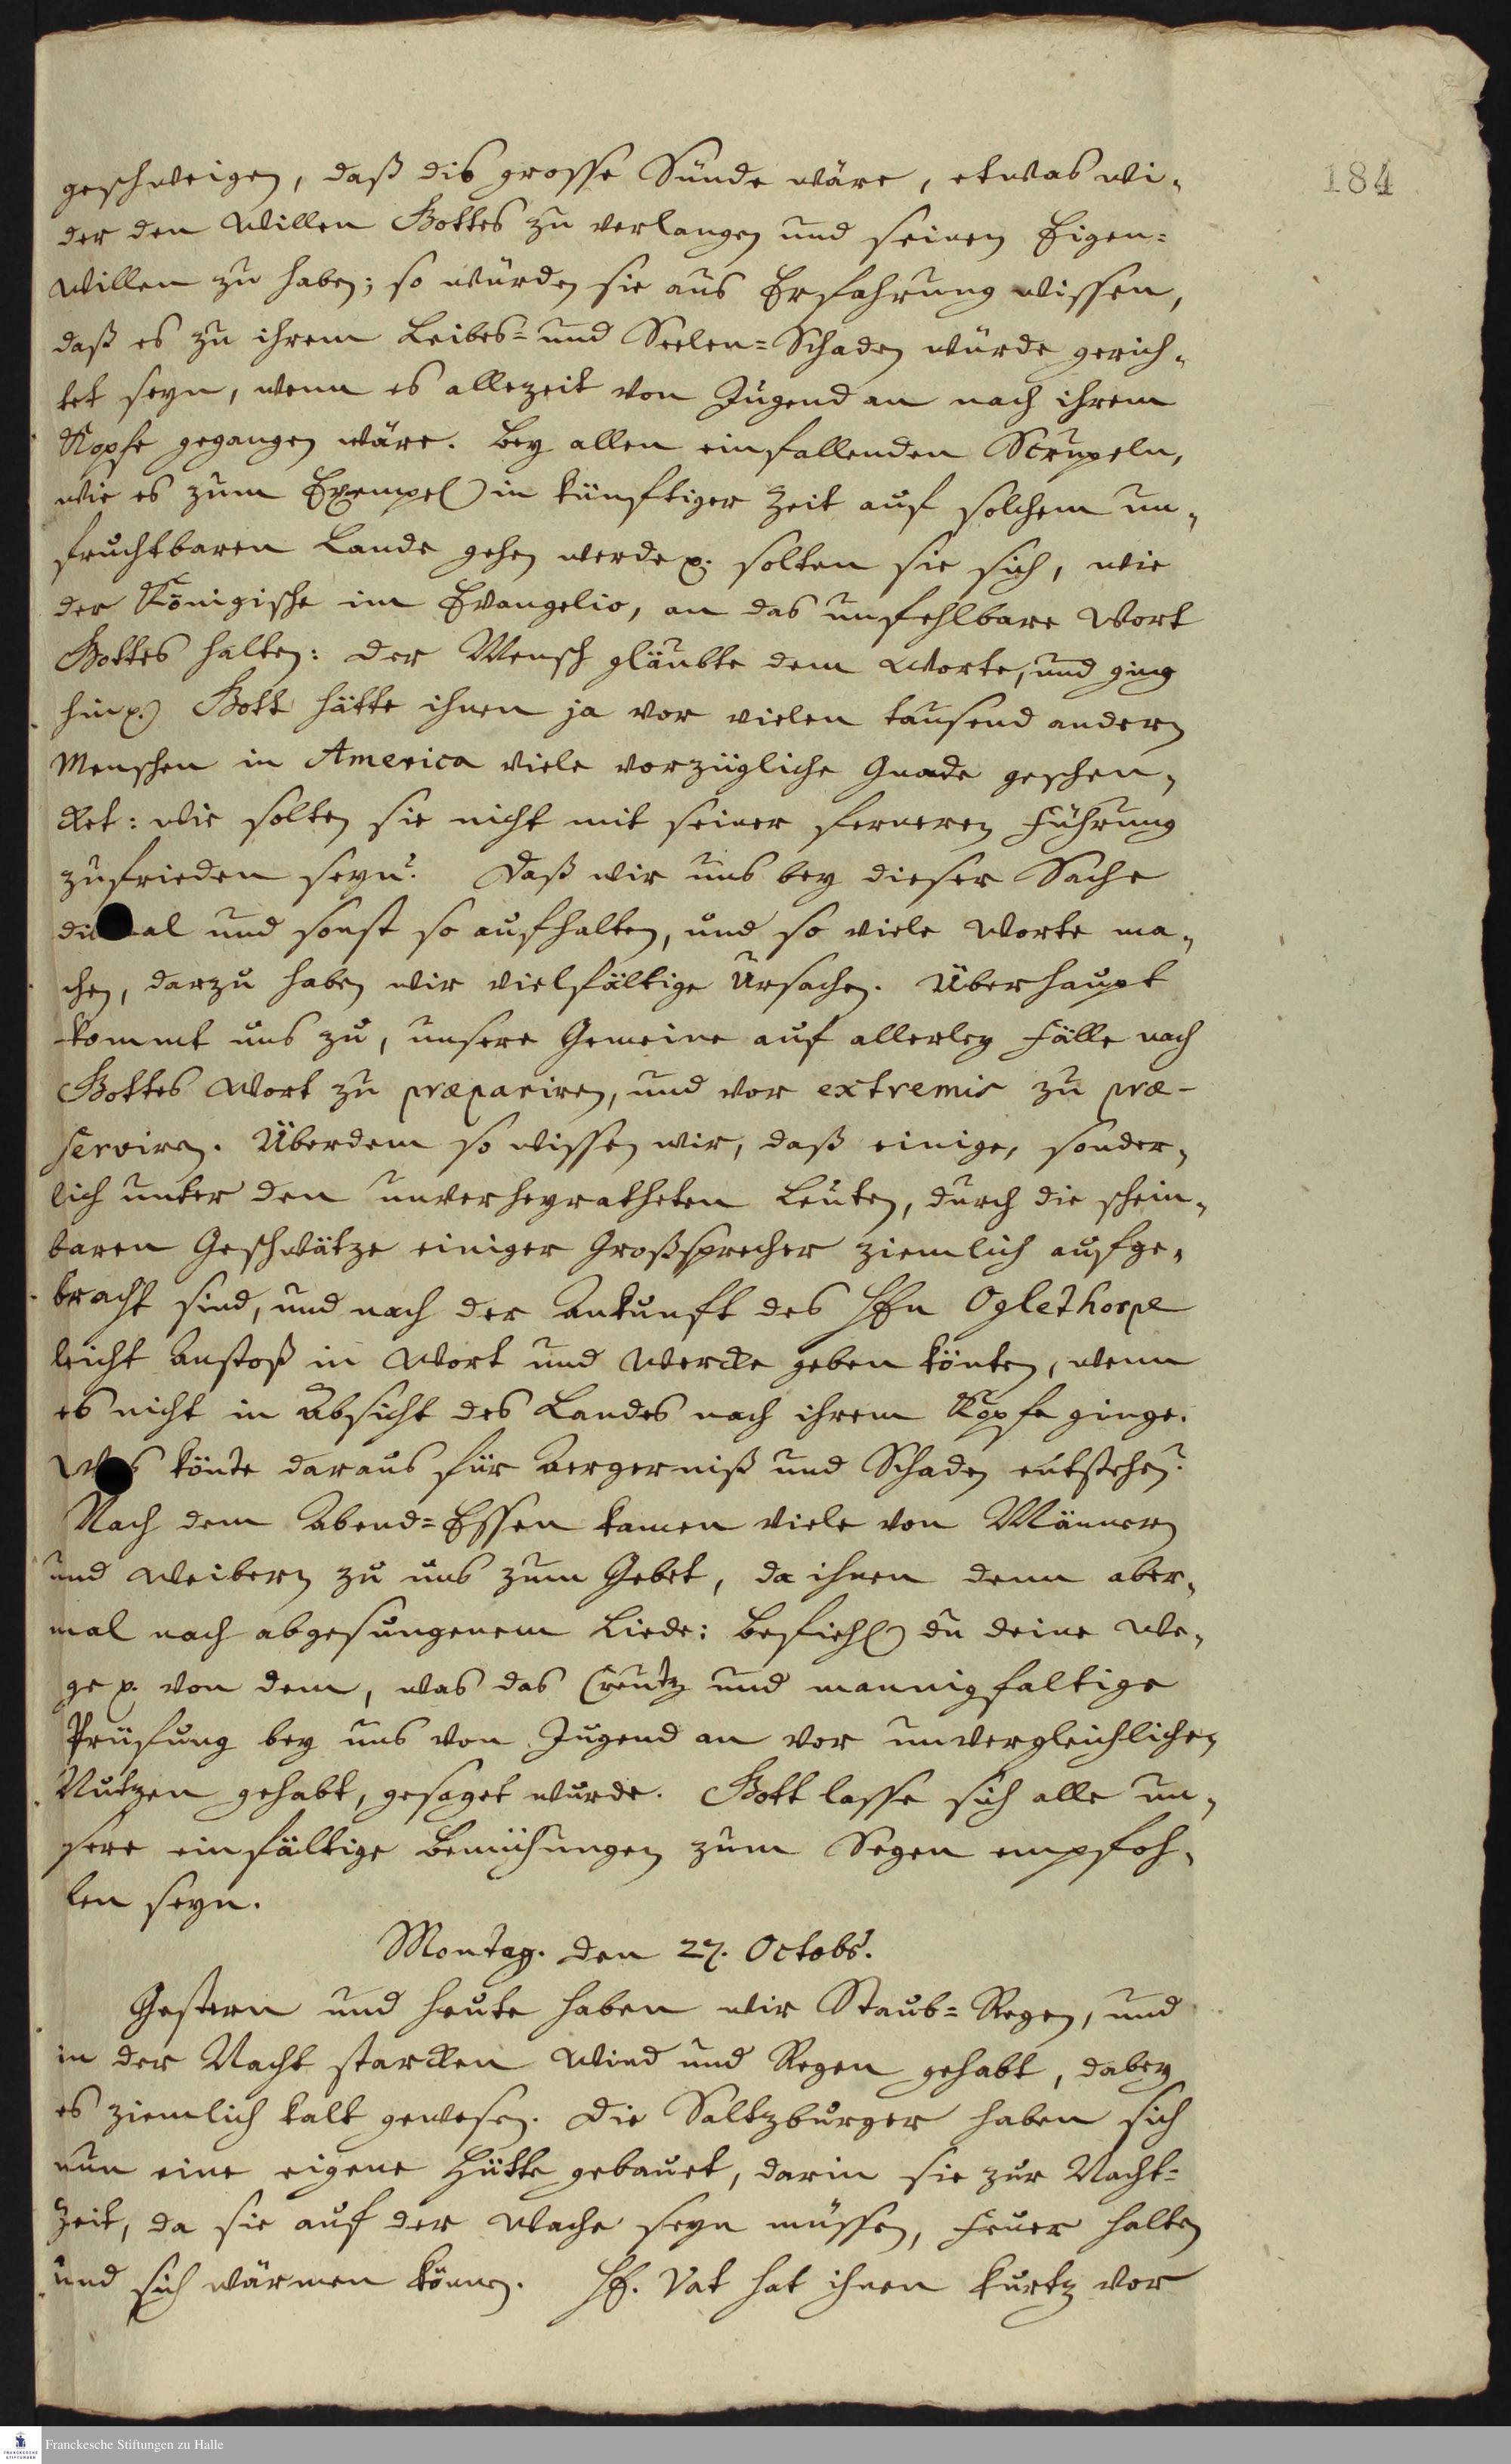 184
geschweigen, daß dis grosse Sünde wäre, etwas wi-
der den Willen Gottes zu verlangen und seinen Eigen=
willen zu haben; so würden sie aus Erfahrung wissen,
daß es zu ihrem Leibes= und Seelen=Schaden würde gerich-
tet seyn, wenn es allezeit von Jugend an nach ihrem
Kopfe gegangen wäre. Bey allen einfallenden Scrupeln,
wie es zum Exempel in künftiger Zeit auf solchem un-
fruchtbaren Lande gehen werde p. solten sie sich, wie
der Königische im Evangelio, an das unfehlbare Wort
Gottes halten: Der Mensch gläubte dem Worte, und ging
hin p. Gott hätte ihnen ja vor vielen tausend andern
Menschen in America viele vorzügliche Gnade geschen-
cket: wie solten sie nicht mit seiner ferneren Führung
zufrieden seyn? Daß wir uns bey dieser Sache
al und sonst so aufhalten, und so viele Worte ma-
chen, darzu haben wir vielfältige Ursachen. Überhaupt
kommt uns zu, unsere Gemeine auf allerley Fälle nach
Gottes Wort zu præpariren, und vor extremis zu præ-
serviren. Überdem so wissen wir, daß einige, sonder-
lich unter den unverheyratheten Leuten, durch die schein-
baren Geschwätze einiger Großsprecher ziemlich aufge-
bracht sind, und nach der Ankunft des HEn Oglethorpe
leicht Anstoß in Wort und Wercke geben könten, wenn
es nicht in Absicht des Landes nach ihrem Kopfe ginge.
Was könte daraus für Aergerniß und Schaden entstehen?
Nach dem Abend=Essen kamen viele von Männern
und Weibern zu uns zum Gebet, da ihnen denn aber-
mal nach abgesungenem Liede: Befiehl du deine We-
ge p. von dem, was das Creutz und mannigfaltige
Prüfung bey uns von Jugend an vor unvergleichlichen
Nutzen gehabt, gesaget wurde. Gott lasse sich alle un-
sere einfältige Bemühungen zum Segen empfoh-
len seyn.
Montag. den 27. Octobr.
Gestern und heute haben wir Staub=Regen, und
in der Nacht starcken Wind und Regen gehabt, dabey
es ziemlich kalt gewesen. Die Saltzburger haben sich
nun eine eigene Hütte gebauet, darin sie zur Nacht=
Zeit, da sie auf der Wache seyn müssen, Feuer halten
und sich wärmen können. HE. Vat hat ihnen kurtz vor
Franckesche Stiftungen zu Halle